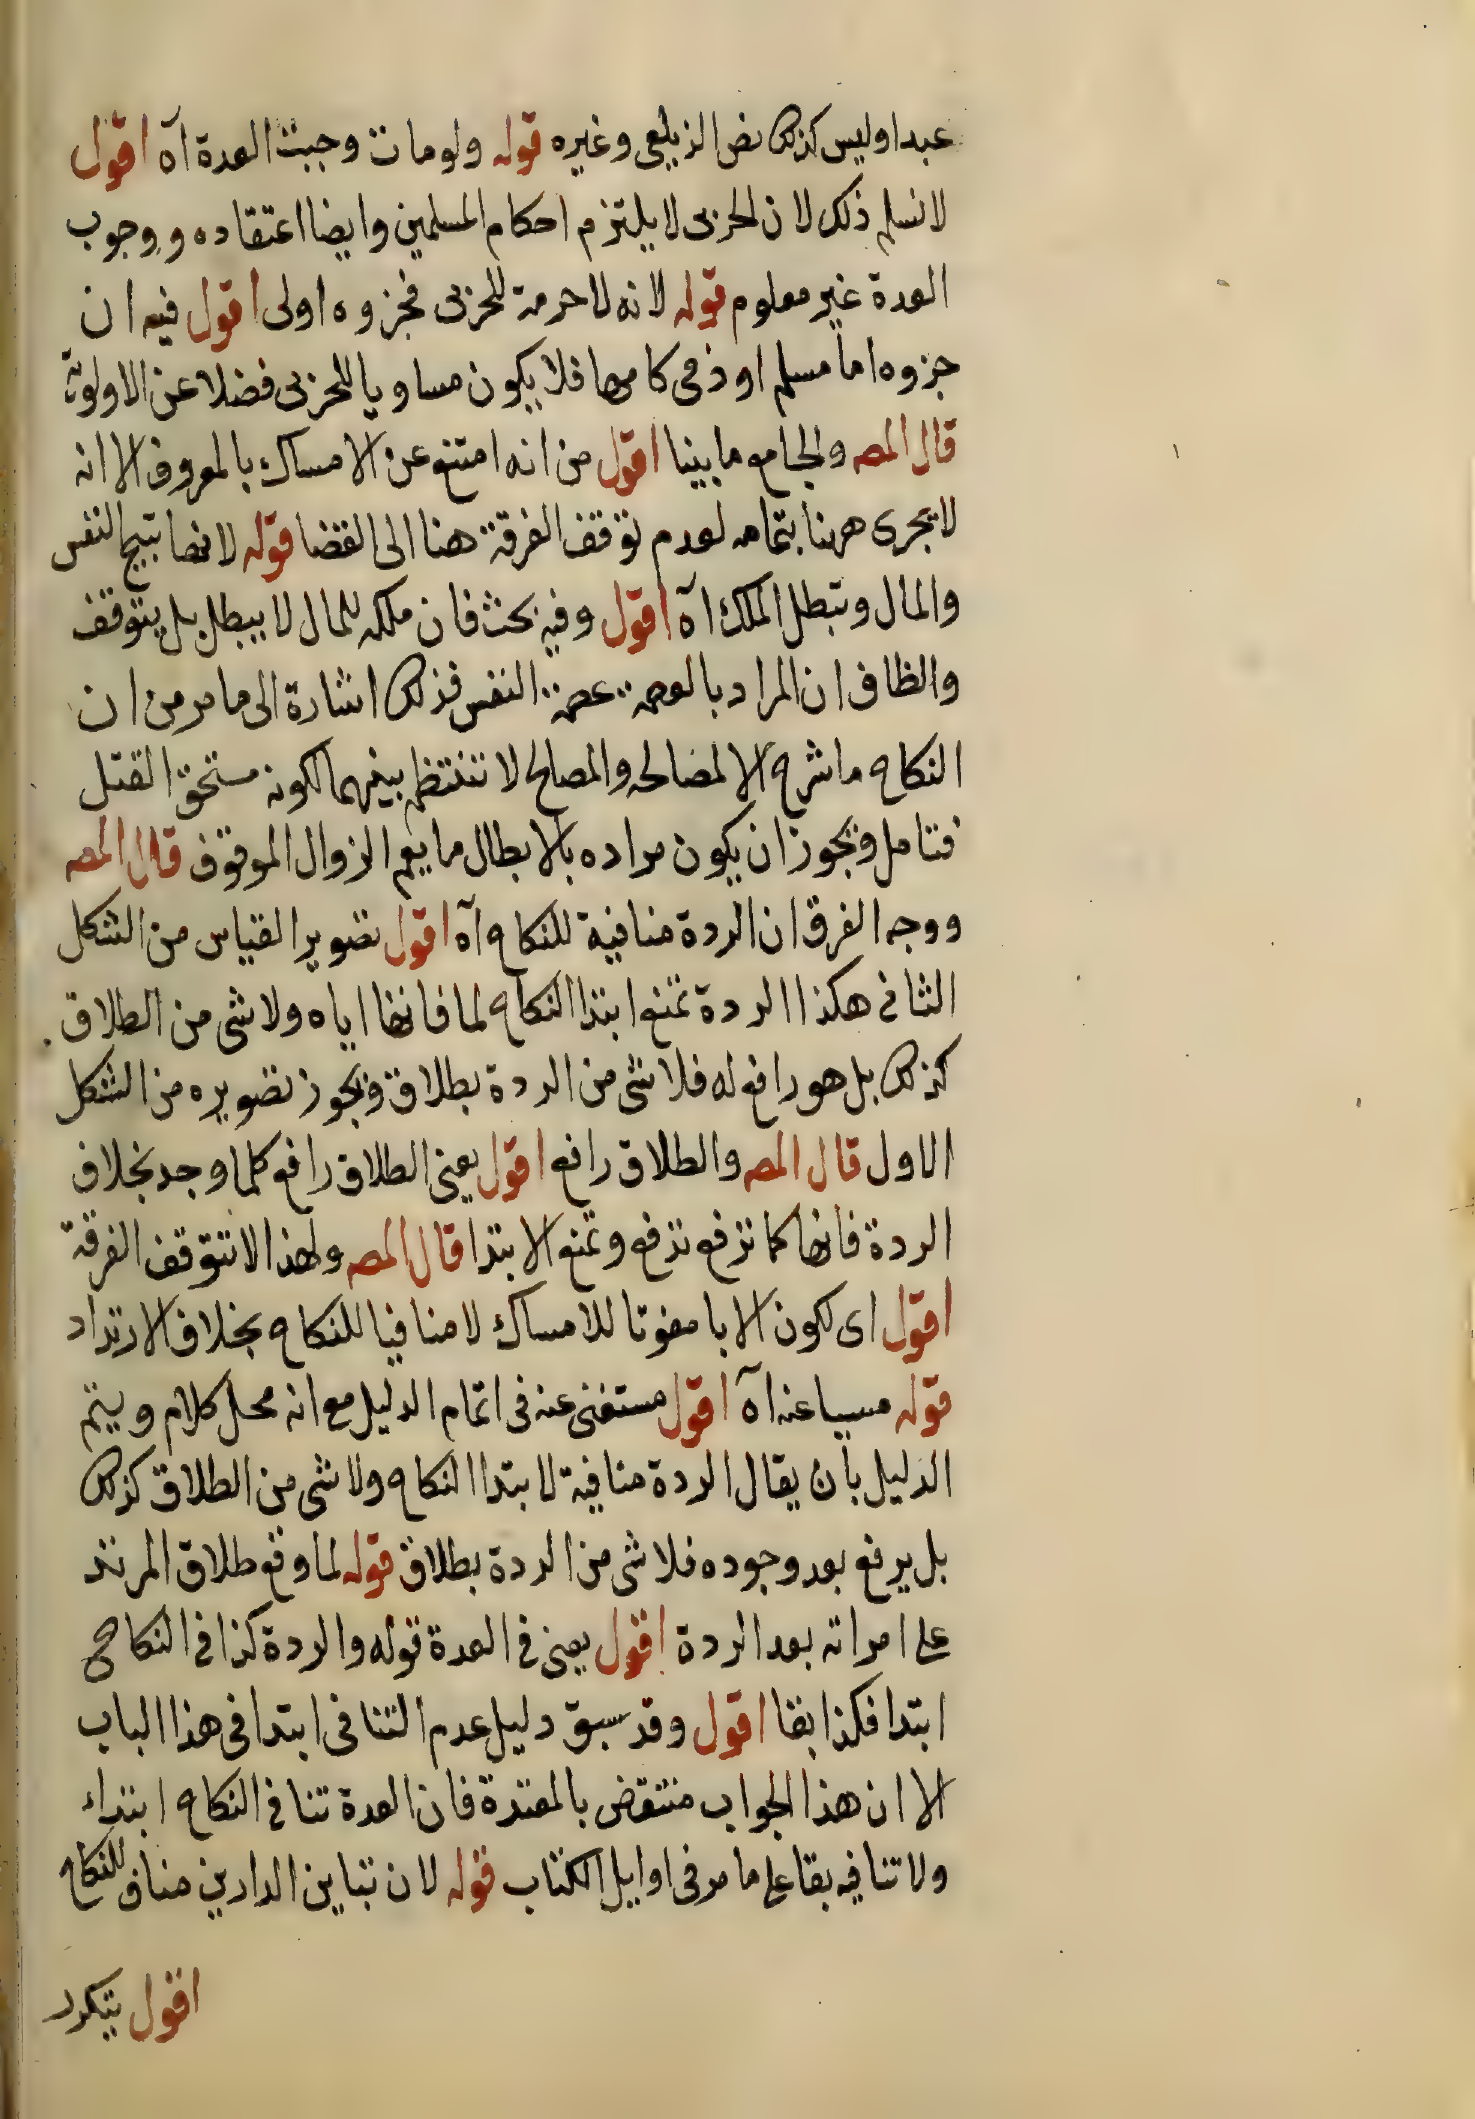 عبدا وليس كذلك نص الزيلعي وغيره قوله ولو مات وجبت العدة اه اقول
لا نسلم ذلك لان الحربى لا يلتزم احكام المسلمين وايضا اعتقاده ووجوب
العدة غير معلوم قوله لانه لا حرمة للحربى فجزوه اولى اقول فيه ان
جزوه اما مسلم او ذمى كامها فلا يكون مساويا للحربى فضلا عن الاولوية
قال المصه والجامع ما بينا اقول من انه امتنع عن الامساك بالمعروف الا انه
لا يجرى ههنا بتمامه لعدم توقف الفرقة هنا الى القضا قوله لانها تبيح النفس
والمال وتبطل الملك اه اقول وفيه بحث فان ملكه للمال لا يبطل بل يتوقف
والظا ان المراد بالعصمة عصمة النفس فذلك اشارة الى ما مر من ان
النكاح ما شرع الا لمصالحه والمصالح لا تنتظم بينهما لكونه مستحق القتل
فتامل ويجوز ان يكون مراده بالابطال ما يعم الزوال الموقوف قال المصه
ووجه الفرق ان الردة منافية للنكاح اه اقول تصوير القياس من الشكل
الثانى هكذا الردة تمنع ابتدا النكاح لمنافاتها اياه ولا شى من الطلاق
كذلك بل هو رافع له فلا شى من الردة بطلاق ويجوز تصويره من الشكل
الاول قال المصه والطلاق رافع اقول يعنى الطلاق رافع كلما وجد بخلاف
الردة فانها كما ترفع تدفع وتمنع الابتدا قال المصه ولهذا لا تتوقف الفرقة
اقول اى لكون الابا مفوتا للامساك لا منافيا للنكاح بخلاف الارتداد
قوله مسببا عنه اه اقول مستغنى عنه فى اتمام الدليل مع انه محل كلام ويتم
الدليل بان يقال الردة منافية لابتدا النكاح ولا شى من الطلاق كذلك
بل يرفع بعد وجوده فلا شى من الردة بطلاق قوله لما وقع طلاق المرتد
على امراته بعد الردة اقول يعنى فى العدة قوله والردة كذا فى النكاح
ابتدا فكذا بقا اقول وقد سبق دليل عدم التنافى ابتدا فى هذا الباب
الا ان هذا الجواب منتقض بالمعتدة فان العدة تنافى النكاح ابتداء
ولا تنافيه بقا على ما مر فى اوايل الكتاب قوله لان تباين الدارين مناف للنكاح
اقول يتكرر